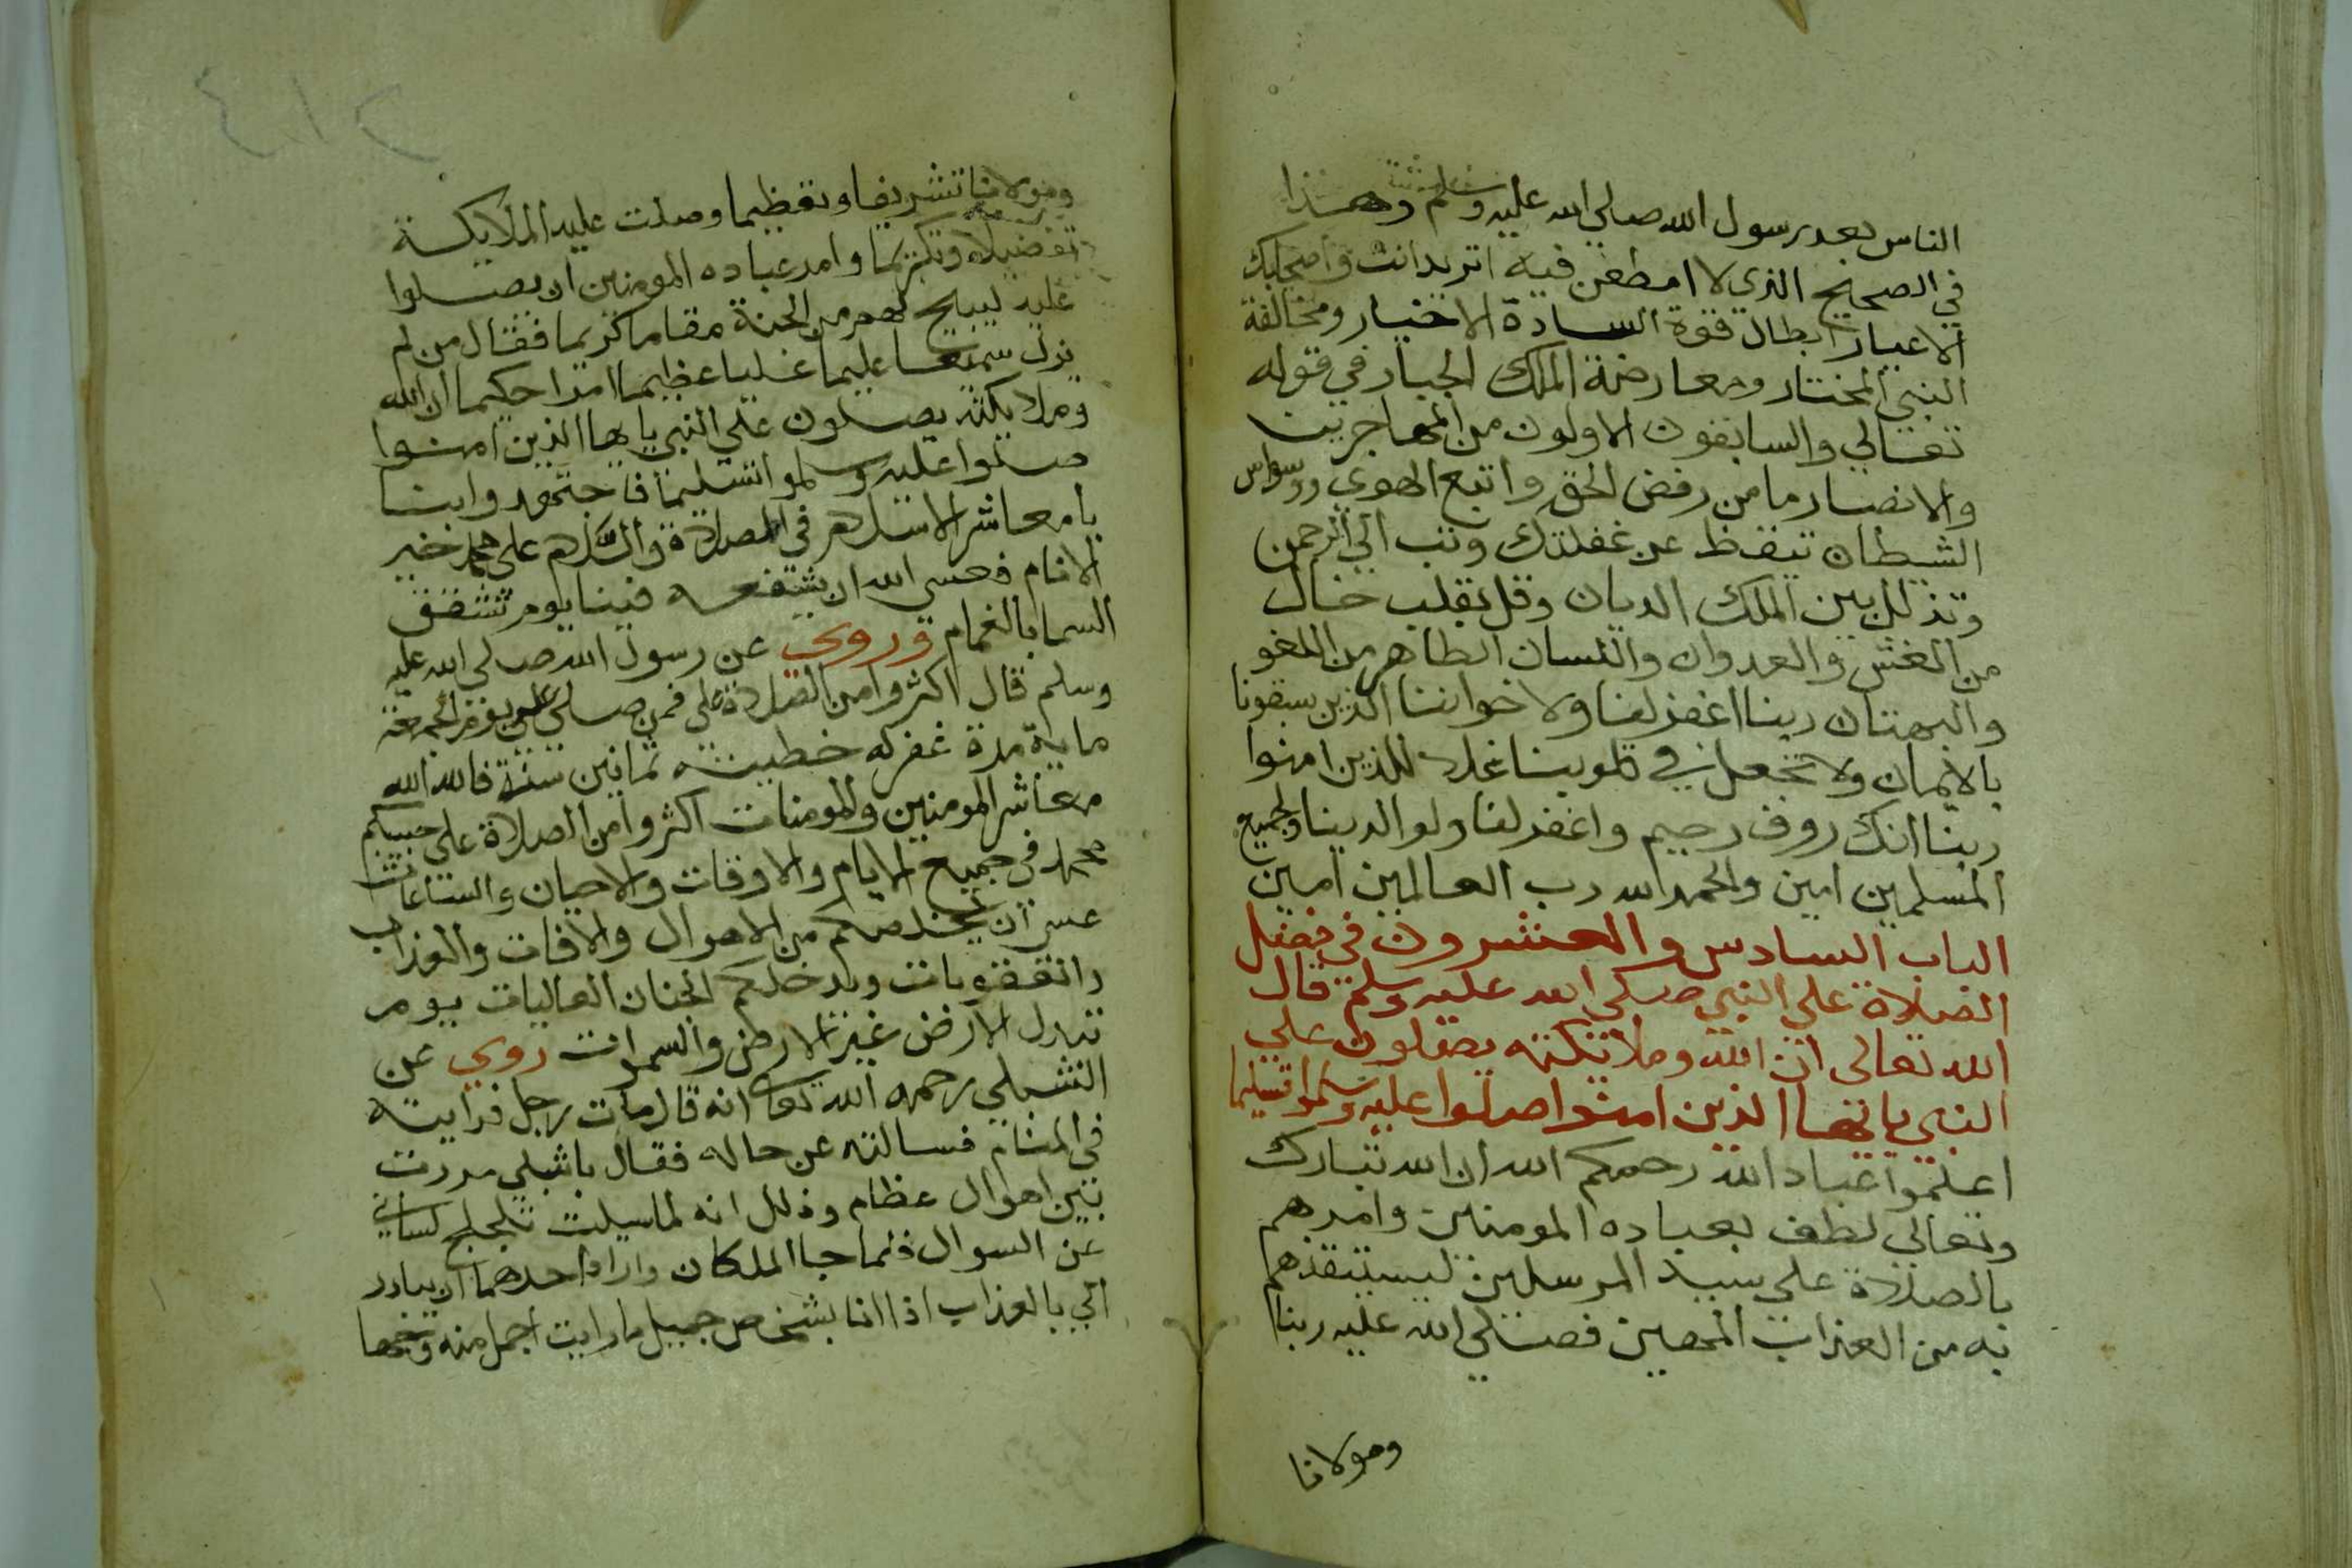 الناس بعد رسول الله صلي الله عليه وسلم وهذا
في الصحيح الذي لا مطعن فيه اتريد انت واصحابك
الاعيار ابطال قوة السادة الاخيار ومخالفة
النبي المختار ومعارضة الملك الجبار في قوله
تعالي والسابقون الاولون من المهاجرين
والانصار يا من رفض الحق واتبع الهوي ووسواس
الشيطان تيقظ عن غفلتك وتب الي الرحمن
وتذلل بين الملك الديان وقل بقلب خال
من الغش والعدوان واللسان الطاهر من اللغو
والبهتان ربنا اغفر لنا ولاخواننا الذين سبقونا
بالايمان ولا تجعل في قلوبنا غلا للذين امنوا
ربنا انك روف رحيم واغفر لنا ولوالدينا ولجميع
المسلمين امين والحمد لله رب العالمين امين
الباب السادس والعشرون في فضل
الصلاة علي النبي صلي الله عليه وسلم قال
الله تعالى ان الله وملائكته يصلون علي
النبي يا ايها الذين امنوا صلوا عليه وسلموا تسليما
اعلموا عباد الله رحمكم الله ان الله تبارك
وتعالي لطف بعباده المومنين وامرهم
بالصلاة علي سيد المرسلين ليستنقذهم
به من العذاب المهين فصلي الله عليه ربنا
ومولانا
٢١٤
ومولانا تشريفا وتعظيما وصلت عليه الملايكة
تفضيلا وتكريما وامر عباده المومنين ان يصلوا
عليه ليبيح لهم من الجنة مقاما كريما فقال من لم
يزل سميعا عليما عليا عظيما حكيما ان الله
وملايكته يصلون علي النبي يا يها الذين امنوا
صلوا عليه وسلموا تسليما فاجتهدوا بنا
يا معاشر الاسلام في الصلاة والسلام علي محمد خير
الانام فعسي الله ان يشفعه فينا يوم تشقق
السما بالغمام وروي عن رسول الله صلي الله عليه
وسلم قال اكثروا من الصلاة علي فمن صلي علي يوم الجمعة
ماية مرة غفر له خطيئته ثمانين سنة فالله الله
معاشر المومنين والمومنات اكثروا من الصلاة علي حبيبكم
محمد في جميع الايام والاوقات والاحيان والساعات
عسي ان يخلصكم من الاهوال والافات والعذاب
والعقوبات ويدخلكم الجنان العاليات يوم
تبدل الارض غير الارض والسموات روي عن
الشبلي رحمه الله تعالي انه قال مات رجل فرايته
في المنام فسالته عن حاله فقال يا شبلي مررت
بين اهوال عظام وذلك انه لما سيلت تلجلج لساني
عن السوال فلما جا الملكان واراد احدهما ان يبادر
الي بالعذاب اذا انا بشخص جميل ما رايت اجمل منه وجها